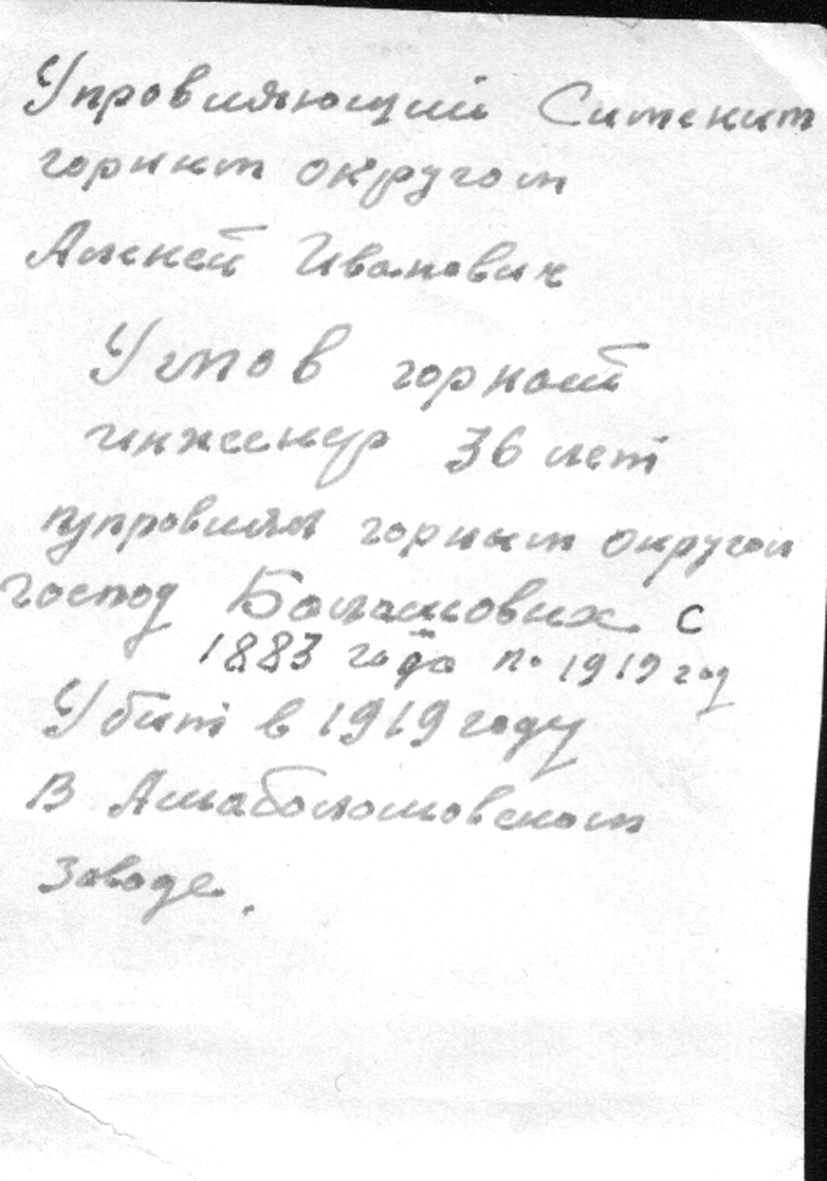 Управляющий Симским
горным округом
Алексей Иванович
Умов горной
инженер 36 лет
упровлял горным округом
господ Балашовых с
1883 года по 1919 год
Убит в 1919 году
В Ашабалашовском
Заводе.